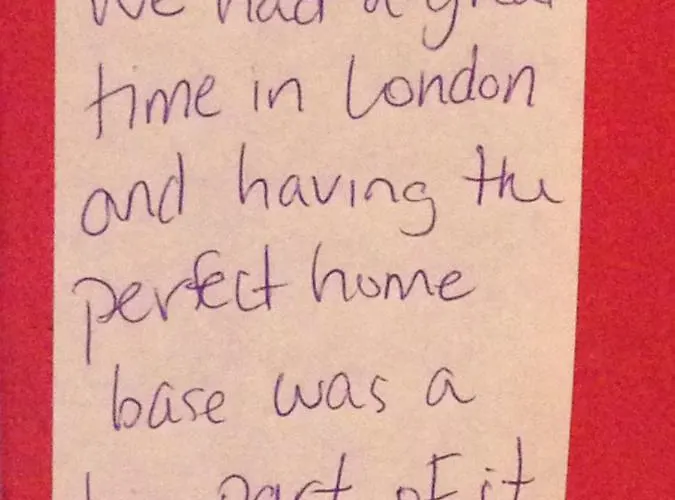 We had a great
time in London
and having the
perfect home
base was a
part of it